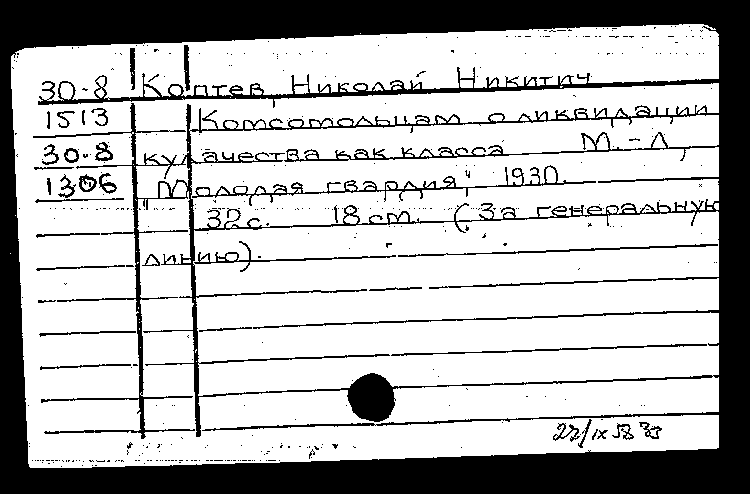 30-8 Коптев, Николай Никитич
1513 Комсомольцам о ликвидации
30-8 кулачества как класса М.-Л,
1306 "Молодая гвардия", 1930.
32 с. 18 см. (За генеральную
линию).
22/IX 58